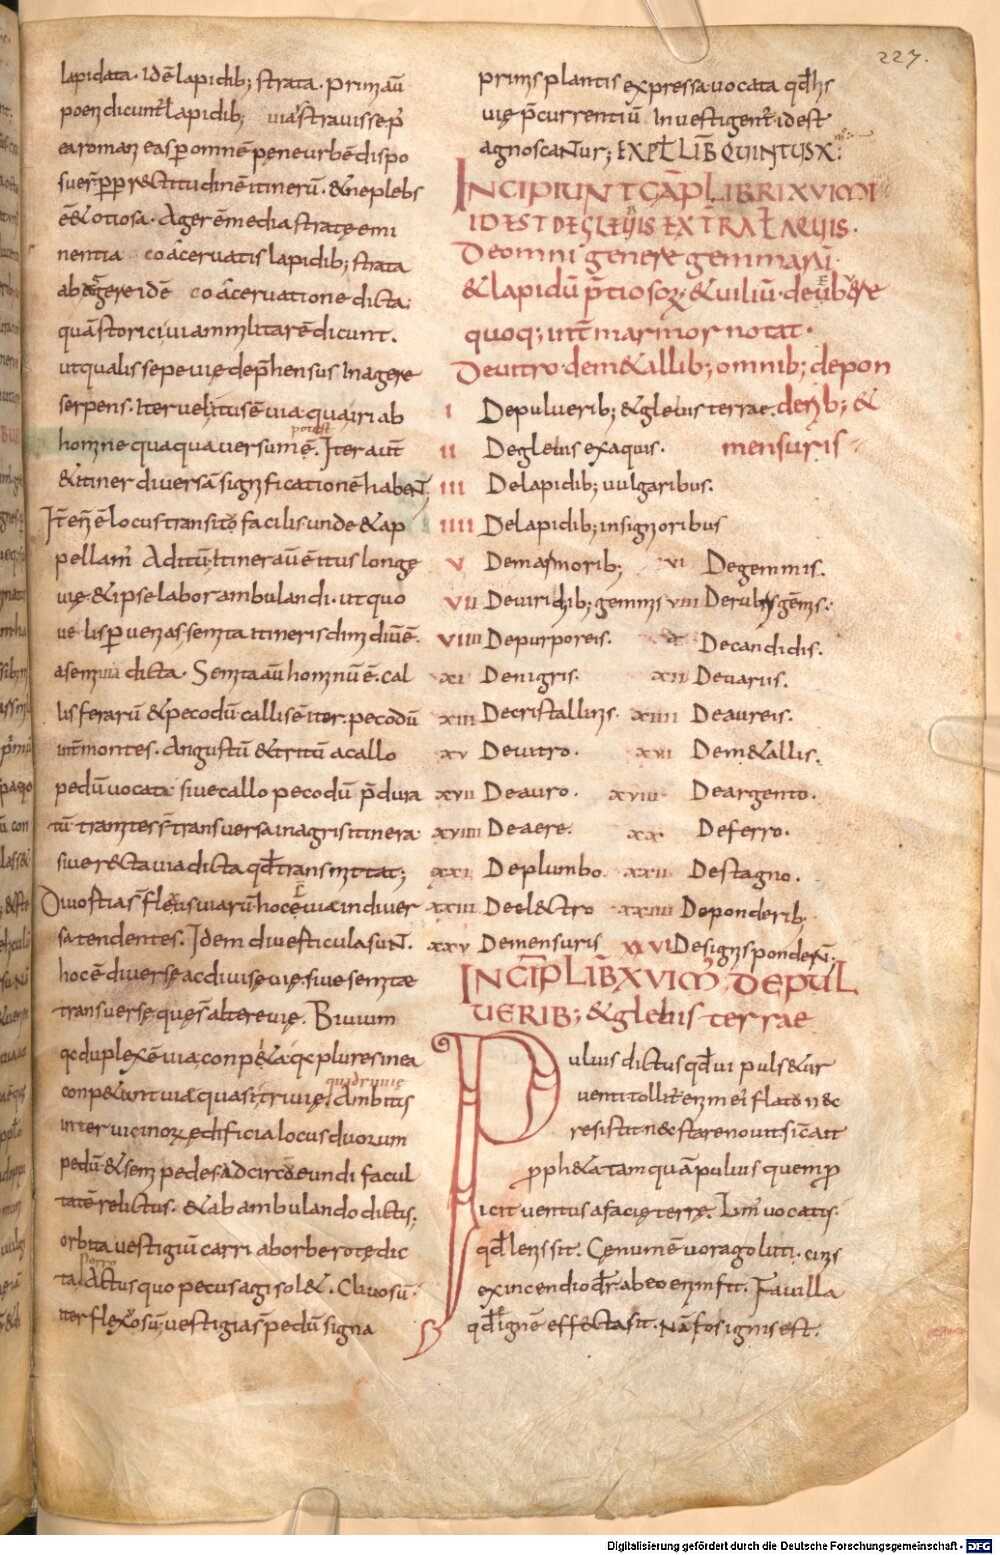 227.
lapidata. Idē lapidib; strata. primaū
poeni dicunt̄ lapidib; viā stravisse p̄
ea romani eas p̱ omnē pene urbē dispo
suer̄ p̱p̱ rectitudinē itinerū. & ne plebs
eēt otiosa. Ager ē media strate emi
nentia coacervatis lapidib; strata
ab aggere idē coacervatione dicta.
quā storici viam militarē dicunt.
ut qualis sepe vię dep̄hensus in agere
serpens. Iter vel itus ē via qua iri ab
homine quaqua versum potest ē. Iter aut̄
& itiner diversā significationē habent,
It̄ eni ē locus transitu facilis unde & ap
pellam̄ Aditū. Itiner aū ē itus longę
vię & ipse labor ambulandi. ut quo
velis p̱venias semita itineris dim diu ē.
a semi via dicta. Semita aū hominū ē. cal
lis ferarū & pecodū callis ē iter. pecodū
int̄ montes. Angustū & tritū a callo
pedū vocata sive callo pecodū p̄dura
tū tramites s̄ transversa in agris itinera
sive recta via dicta qd̄ transmittat;
Divostia s̄ flexus viarū hoc ē vię in diver
sa tendentes. Idem divesticula sunt.
hoc ē diverse ac divise vię. sive semitae
transverse quę s̄ altere vię. Bivium
qđ duplex ē via. conpeta. qđ plures in ea
conpetunt vię quasi trivię. quadruvię Ambitus
inter vicinor̄ ędificia locus duorum
pedū & semipedes. ad circūeundi facul
tatē relictus. & ab ambulando dictus;
orbita vestigiū carri ab orbe rotę dic
ta. porro Actus quo pecus agi solet. Clivosū
iter flexosū; vestigia s̄ pedū signa
primis plantis expressa vocata qd̄ his
vię p̄currentiū Investigent̄ id est
agnoscantur; EXPL̄ LIB QUINTUS X̄:
INCIPIUNT CAP̄L LIBRI XVIMI
ID EST DE GLEVIS EXTRAL AQUIS.
De omni genere gemmarū.
& lapidū p̄tiosor̄ & viliū. de ubere
quoq; int̄ marmor notat.
De vitro. de metallib; omnib; de pon
I De pulverib; & glebis terrae. derib; &
II De glebis ex aquis. mensuris
III De lapidib; vulgaribus.
IIII De lapidib; insignioribus
V De marmorib; VI De gemmis.
VII De viridib; gemmis VIII De rubris gēmis.
VIIII De purporeis. X De candidis.
XI De nigris. XII De variis.
XIII De cristallinis. XIIII De aureis.
XV De vitro. XVI De metallis.
XVII De auro. XVIII De argento.
XVIIII De aere. XX. De ferro.
XXI De plumbo. XXII De stagno.
XXIII De electro XXIIII De ponderib;
XXV De mensuris XXVI De signis ponderū;
INCIP̄ LIB XVIMS DE PUL
VERIB; & glebis terrae
Pulvis dictus qd̄ vi pulsetur
venti tollit̄ enim ei flatu nec
resistit nec stare novit sicut ait
p̱pheta tamquā pulvis quem p̱
icit ventus a facie terrę. Lim̄ vocatus
qd̄ lenis sit. Cenum ē vorago luti. cinis
ex incendio dr̄. ab eo enim fit. Favilla
qd̄ p̱ ignē effecta sit. Nā fos ignis est.
Digitalisierung gefördert durch die Deutsche Forschungsgemeinschaft - DFG